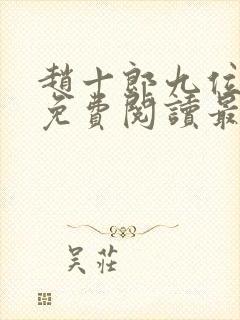 趙十郎九位
免費閱讀最
吴莊